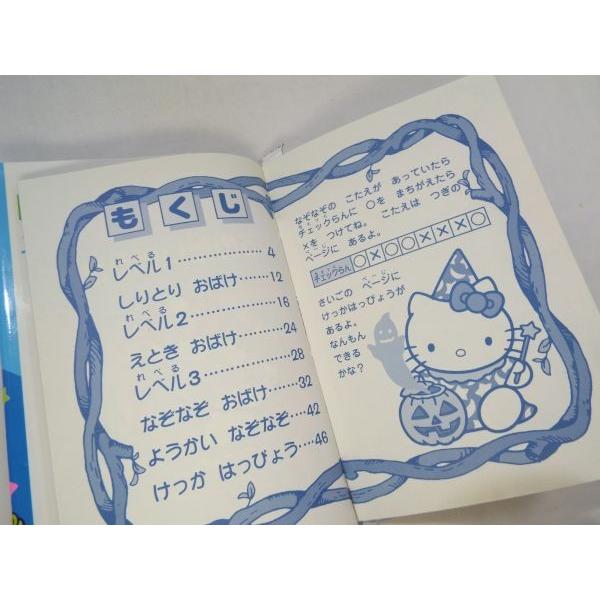 もくじ
れべる
レベル1……………4
しりとり おばけ……12
れべる
レベル2……………16
えとき おばけ………24
れべる
レベル3……………28
なぞなぞ おばけ……32
ようかい なぞなぞ…42
けっか はっぴょう…46
なぞなぞの こたえが あっていたら
チェックらんに ○を まちがえたら
×を つけてね。 こたえは つぎの
ページに あるよ。
チェックらん ○×○○×××○
さいごの ページに
けっかはっぴょうが
あるよ。
なんもん
できる
かな?